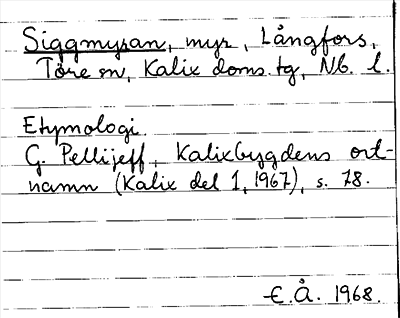 Siggmyran, myr, Långfors,
Töre sn, Kalix doms. tg, Nb. l.
Etymologi.
G. Pellijeff, Kalixbygdens ort-
namn (Kalix del 1, 1967), s. 78.
E.Å. 1968.